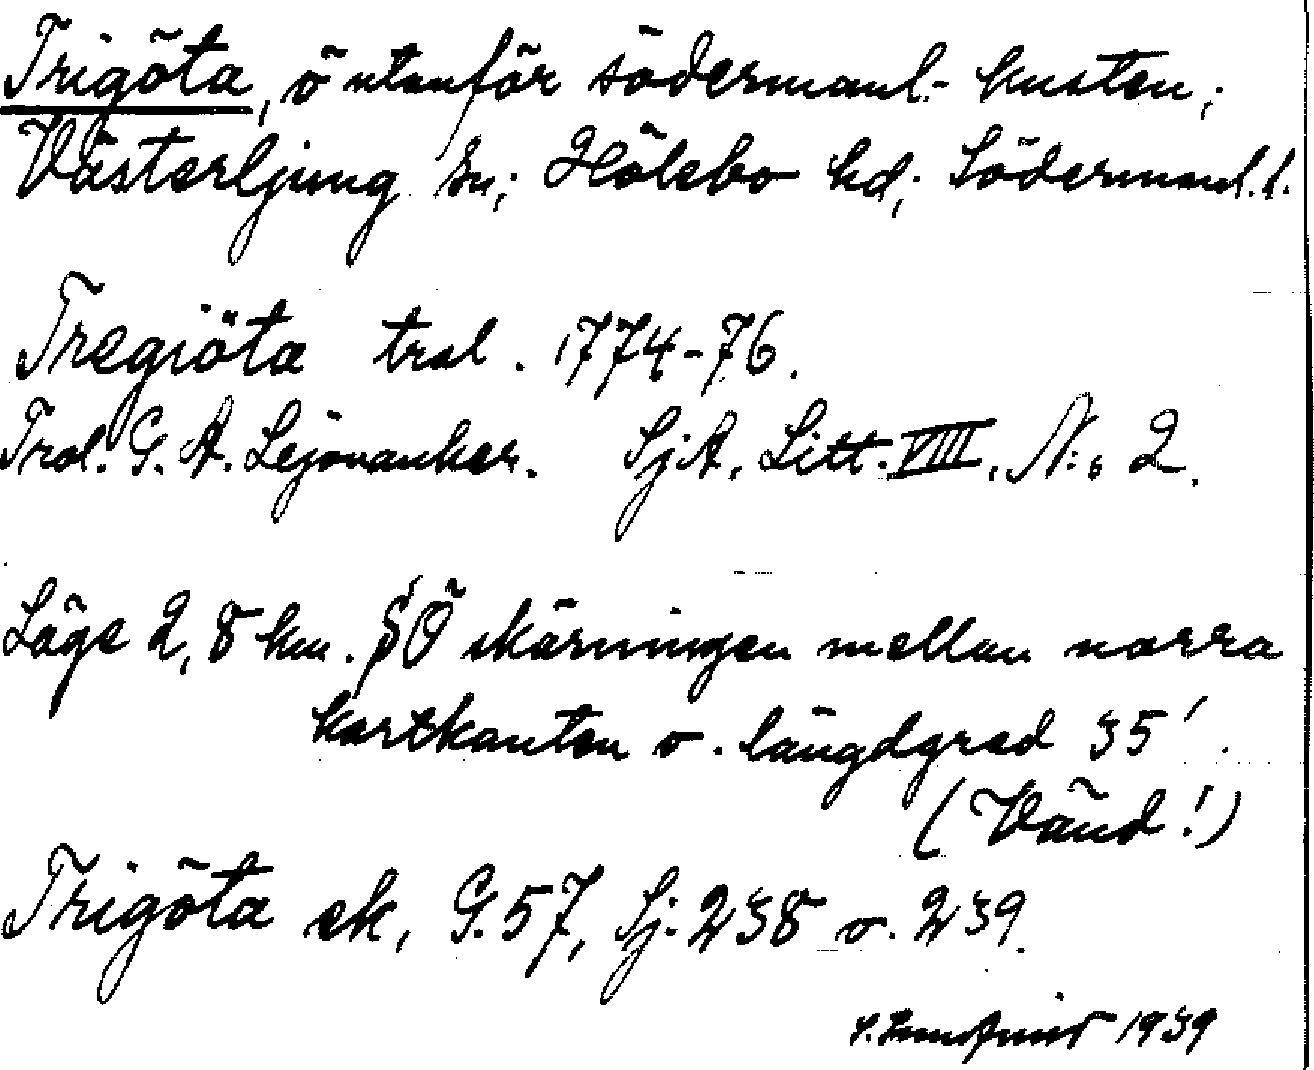 Trigöta, ö utanför södermanl. kusten;
Västerljung sn; Hölebo hd; Södermanl. l.
Tregiöta tral. 1774-76.
Tral. G. A. Lejonanker. SjA. Litt. VIII. N:o 2.
Läge 2,8 km. SÖ skärningen mellan norra
kartkanten o. längdgrad 35'.
(Vänd!)
Trigöta ek, G. 57, Sj. 238 o. 239.
1939